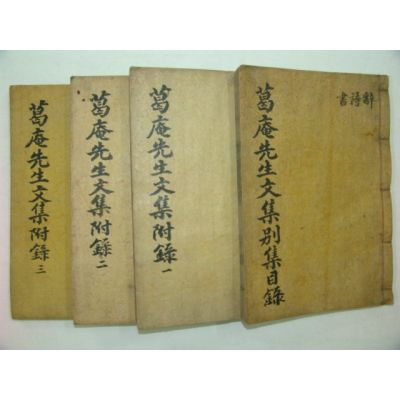 辭語書
葛庵先生文集別集目錄
葛庵先生文集附錄一
葛庵先生文集附錄二
葛庵先生文集附錄三